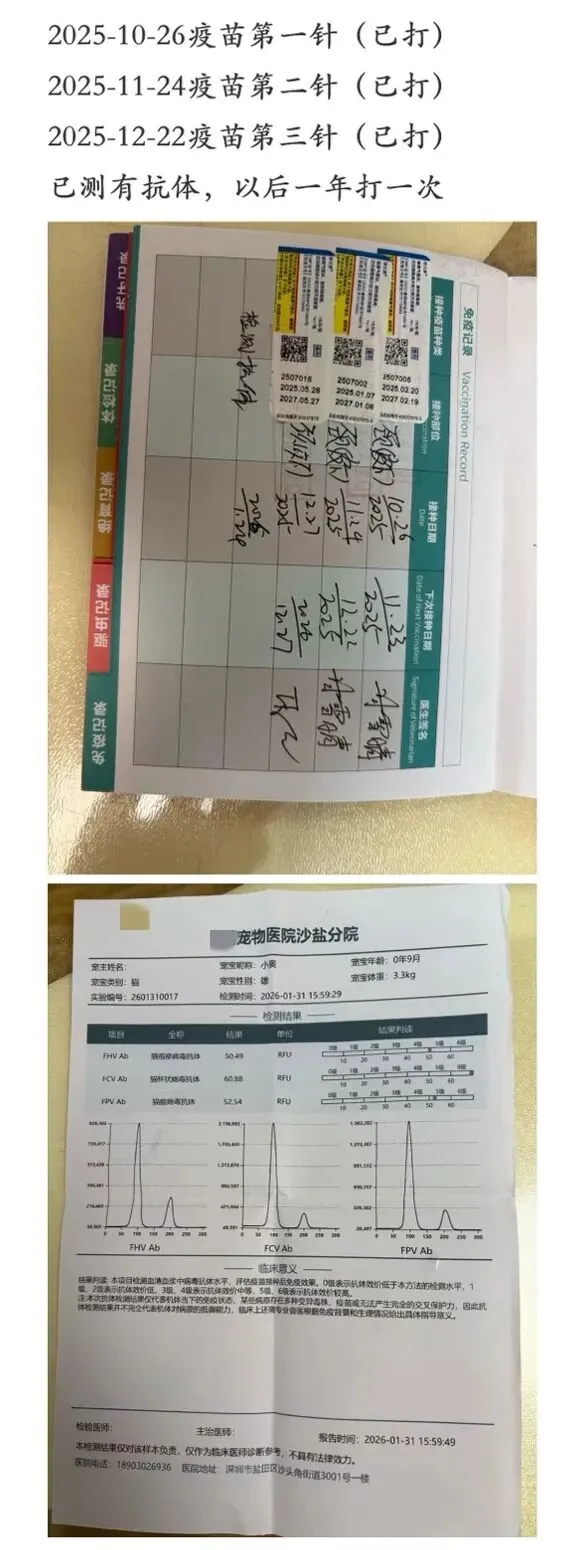 2025-10-26疫苗第一针（已打）
2025-11-24疫苗第二针（已打）
2025-12-22疫苗第三针（已打）
已测有抗体，以后一年打一次
免疫记录 Vaccination Record
接种疫苗种类
接种部位
接种日期 Date
下次接种日期 Date of Next Vaccination
医生签名 Signature of Veterinarian
2507005
2025.02.20
2027.02.19
10.26
2025
11.23
2025
2507002
2025.01.07
2027.01.06
11.24
2025
12.22
2025
2507016
2025.05.28
2027.05.27
12.27
2025
2026
12.27
检测抗体
体检记录
绝育记录
驱虫记录
免疫记录
宠物医院沙盐分院
宠主姓名： 宠宝昵称：小奥 宠宝年龄：0年9月
宠宝类别：猫 宠宝性别：雄 宠宝体重：3.3kg
实验编号：2601310017 检测时间：2026-01-31 15:59:29
检测结果
项目 全称 结果 单位 结果判读
FHV Ab 猫疱疹病毒抗体 50.49 RFU
0级 1级 2级 3级 4级 5级 6级
10 20 30 40 50 60
FCV Ab 猫杯状病毒抗体 60.88 RFU
0级 1级 2级 3级 4级 5级 6级
10 20 30 40 50 60
FPV Ab 猫瘟病毒抗体 52.54 RFU
0级 1级 2级 3级 4级 5级 6级
10 20 30 40 50 60
0 50 100 150 200 250 300
0 50 100 150 200 250 300
0 50 100 150 200 250 300
FHV Ab FCV Ab FPV Ab
临床意义
结果判读：本项目检测血清血浆中病毒抗体水平，评估疫苗接种后免疫效果。0级表示抗体效价低于本方法的检测水平，1
级、2级表示抗体效价低，3级、4级表示抗体效价中等，5级、6级表示抗体效价较高。
注：本次抗体检测结果仅代表机体当下的免疫状态，某些病原存在多种变异毒株，疫苗或无法产生完全的交叉保护力，因此抗
体检测结果并不完全代表机体对病原的抵御能力，临床上还需专业兽医根据免疫背景和生理情况给出具体指导意义。
检验医师： 主治医师： 报告时间：2026-01-31 15:59:49
本检测结果仅对该样本负责，仅作为临床医师诊断参考，不具有法律效力。
医院电话：18903026936 医院地址：深圳市盐田区沙头角街道3001号一楼